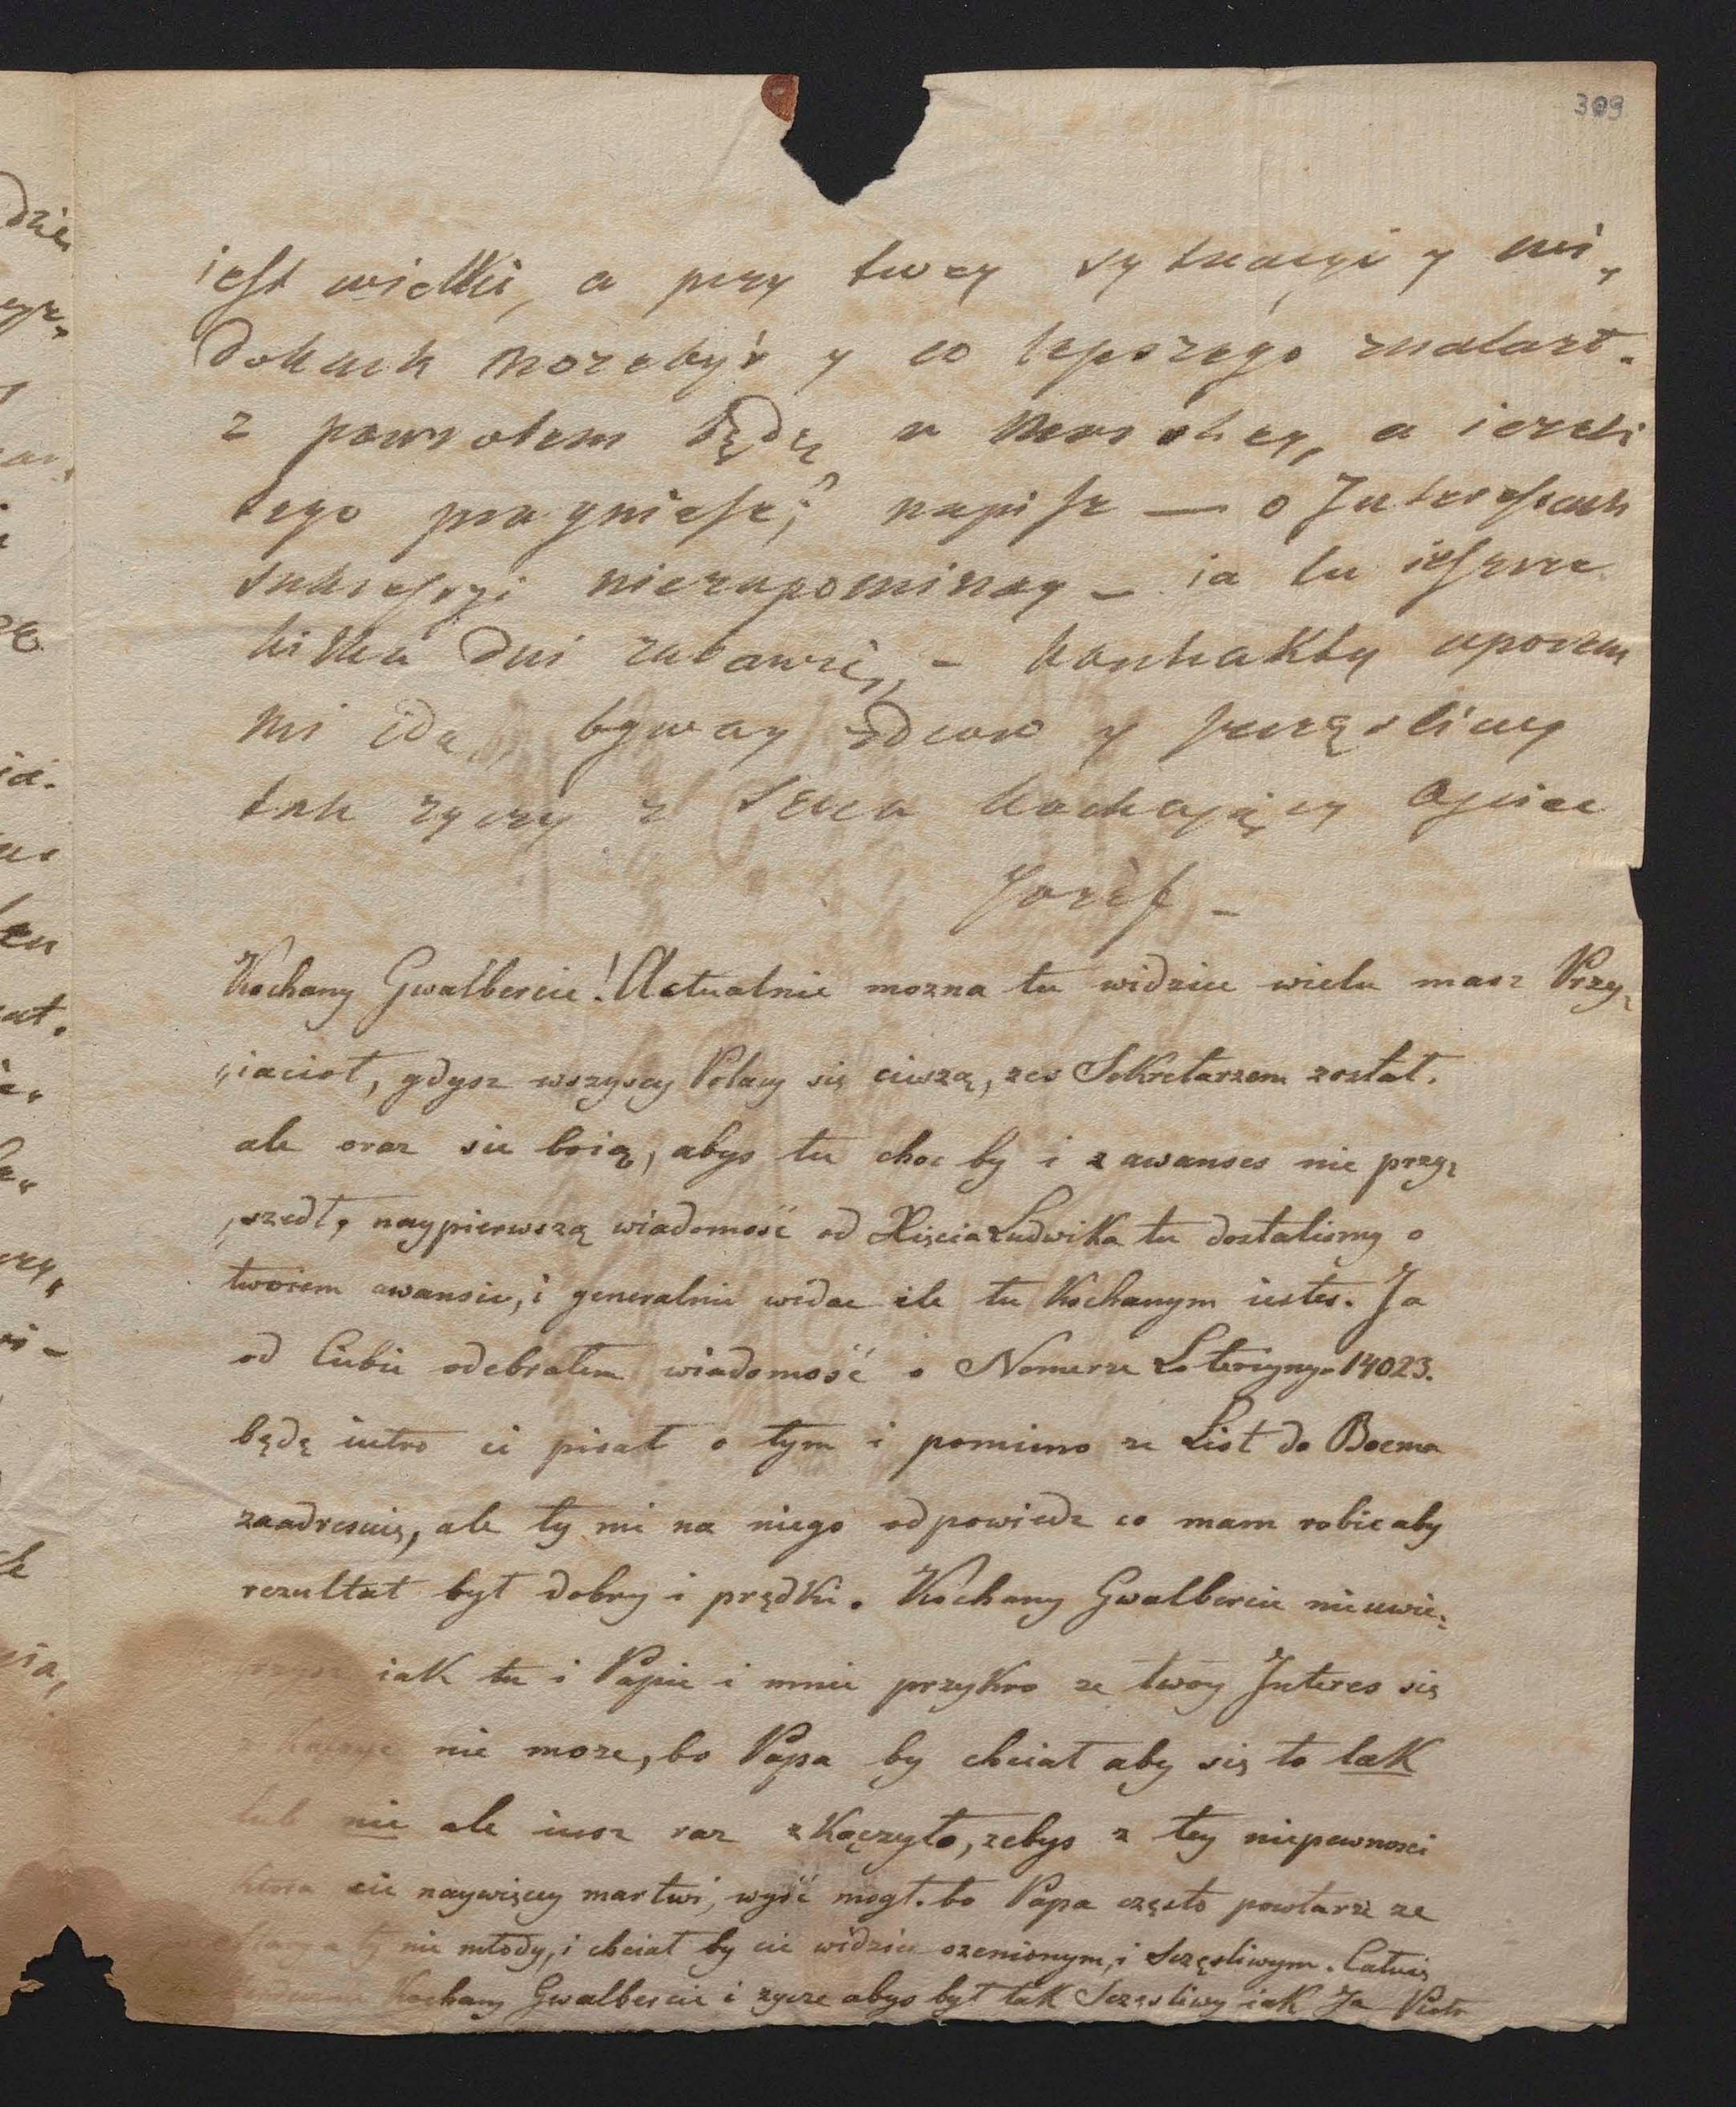 309
iest wielki, a przy twey sytuacyi y wi,
dokach możebyś y co lepszego znalazł.
z powrotem będę w a ieżeli
tego pragniesz, napisz — o Interessach
sukcessyi niezapominay — ia tu ieszcze
kilka dni zabawię, — kontrakty uporem
mi idą, byway zdrow y szczęsliwy
tak życzy z serca kochaiący Oyciec
Jozef —
Kochany Gwalbercie! Actualnie mozna tu widziec wielu masz Przy,
„iacioł, gdysz wszyscy Polacy się cieszą, zes Sekretarzem został.
ale oraz sie boią, abys tu choc by i z awanses nie przy,
„szedł, naypierwszą wiadomość od Xięcia Ludwika tu dostalismy o
twoiem awansie, i generalnie widac ile tu Kochanym iestes. Ja
od Ciebie odebrałem wiadomość o Nomerze Loteriyny 14023.
będę iutro ci pisał o tym i pomimo ze List do Boema
zaadresuię, ale ty mi na niego odpowiedz co mam robic aby
rezultat był dobry i prędki. Kochany Gwalbercie nieuwie,
iak tu i Papie i mnie przykro ze twoy Interes się
nie moze, bo Papa by chciał aby się to tak
lub nie ale iusz raz zKączyło, zebys z tey niepewnosci
ktora cie naywięcey martwi, wyść mogł. bo Papa często powtarza ze
ty nie młody, i chciał by cie widziec ozenionym, i Sczęsliwym. Całuię
Kochany Gwalbercie i zycze abys był tak Sczęsliwy iak Ja Piotr